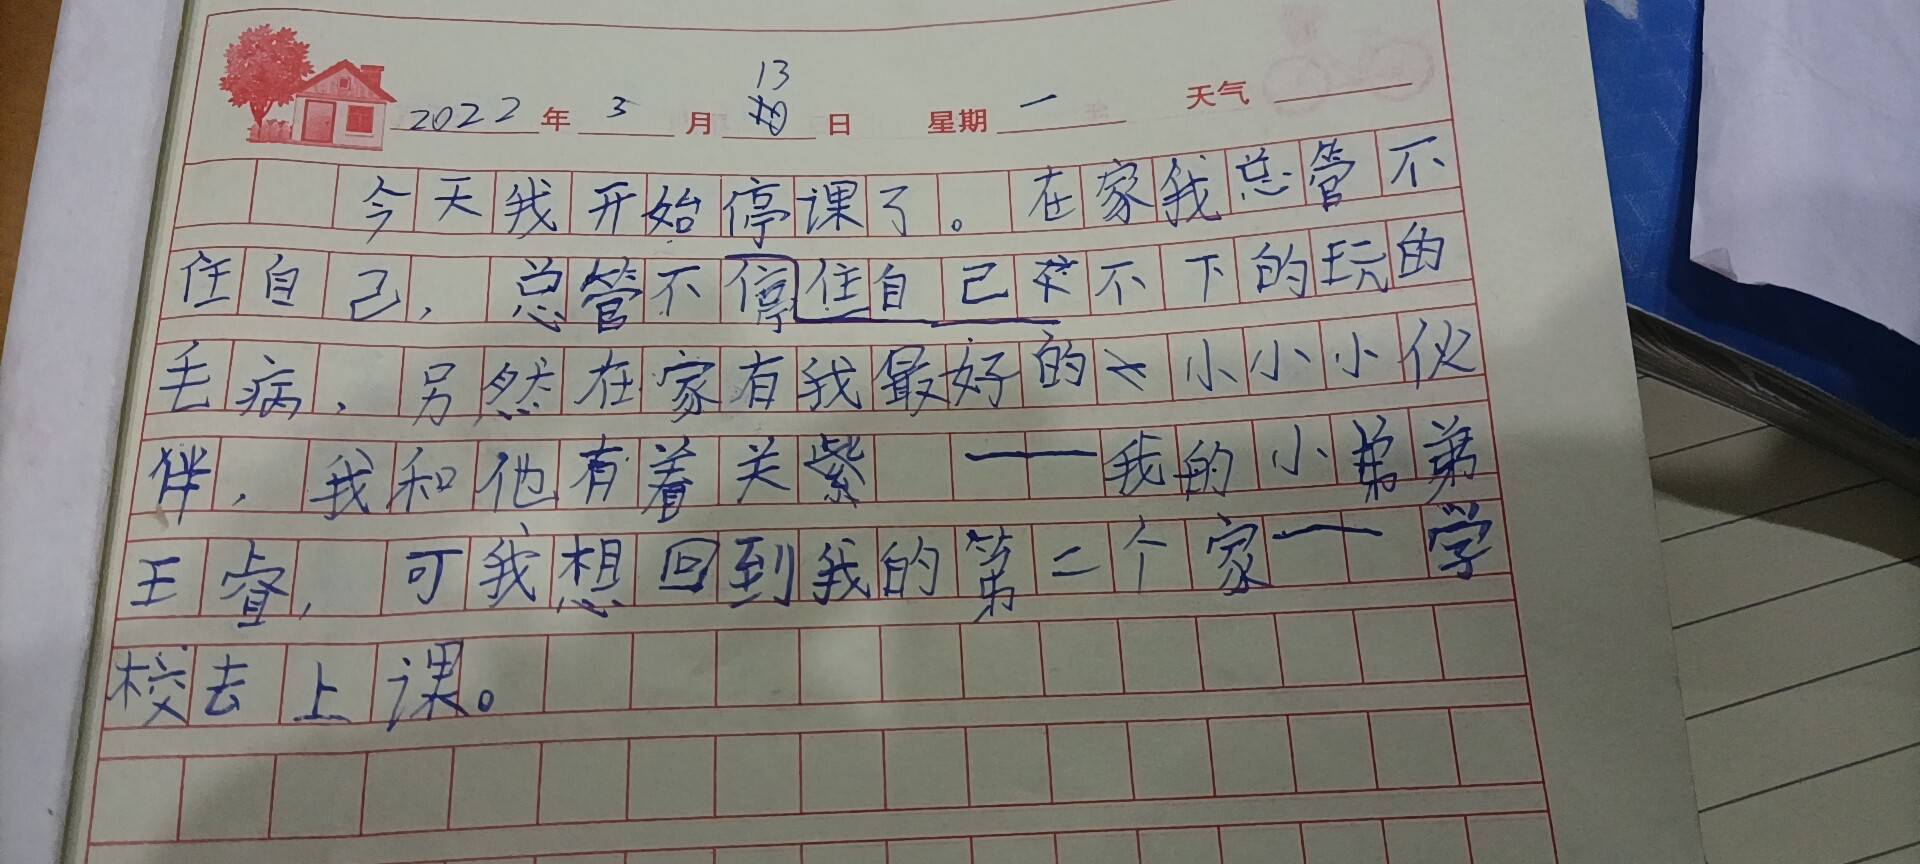 2022年3月13日 星期一 天气
今天我开始停课了。在家我总管不
住自己，总管不停住自己不下的玩的
毛病，另然在家有我最好的小小小伙
伴，我和他有着关紧——我的小弟弟
王睿，可我想回到我的第二个家——学
校去上课。